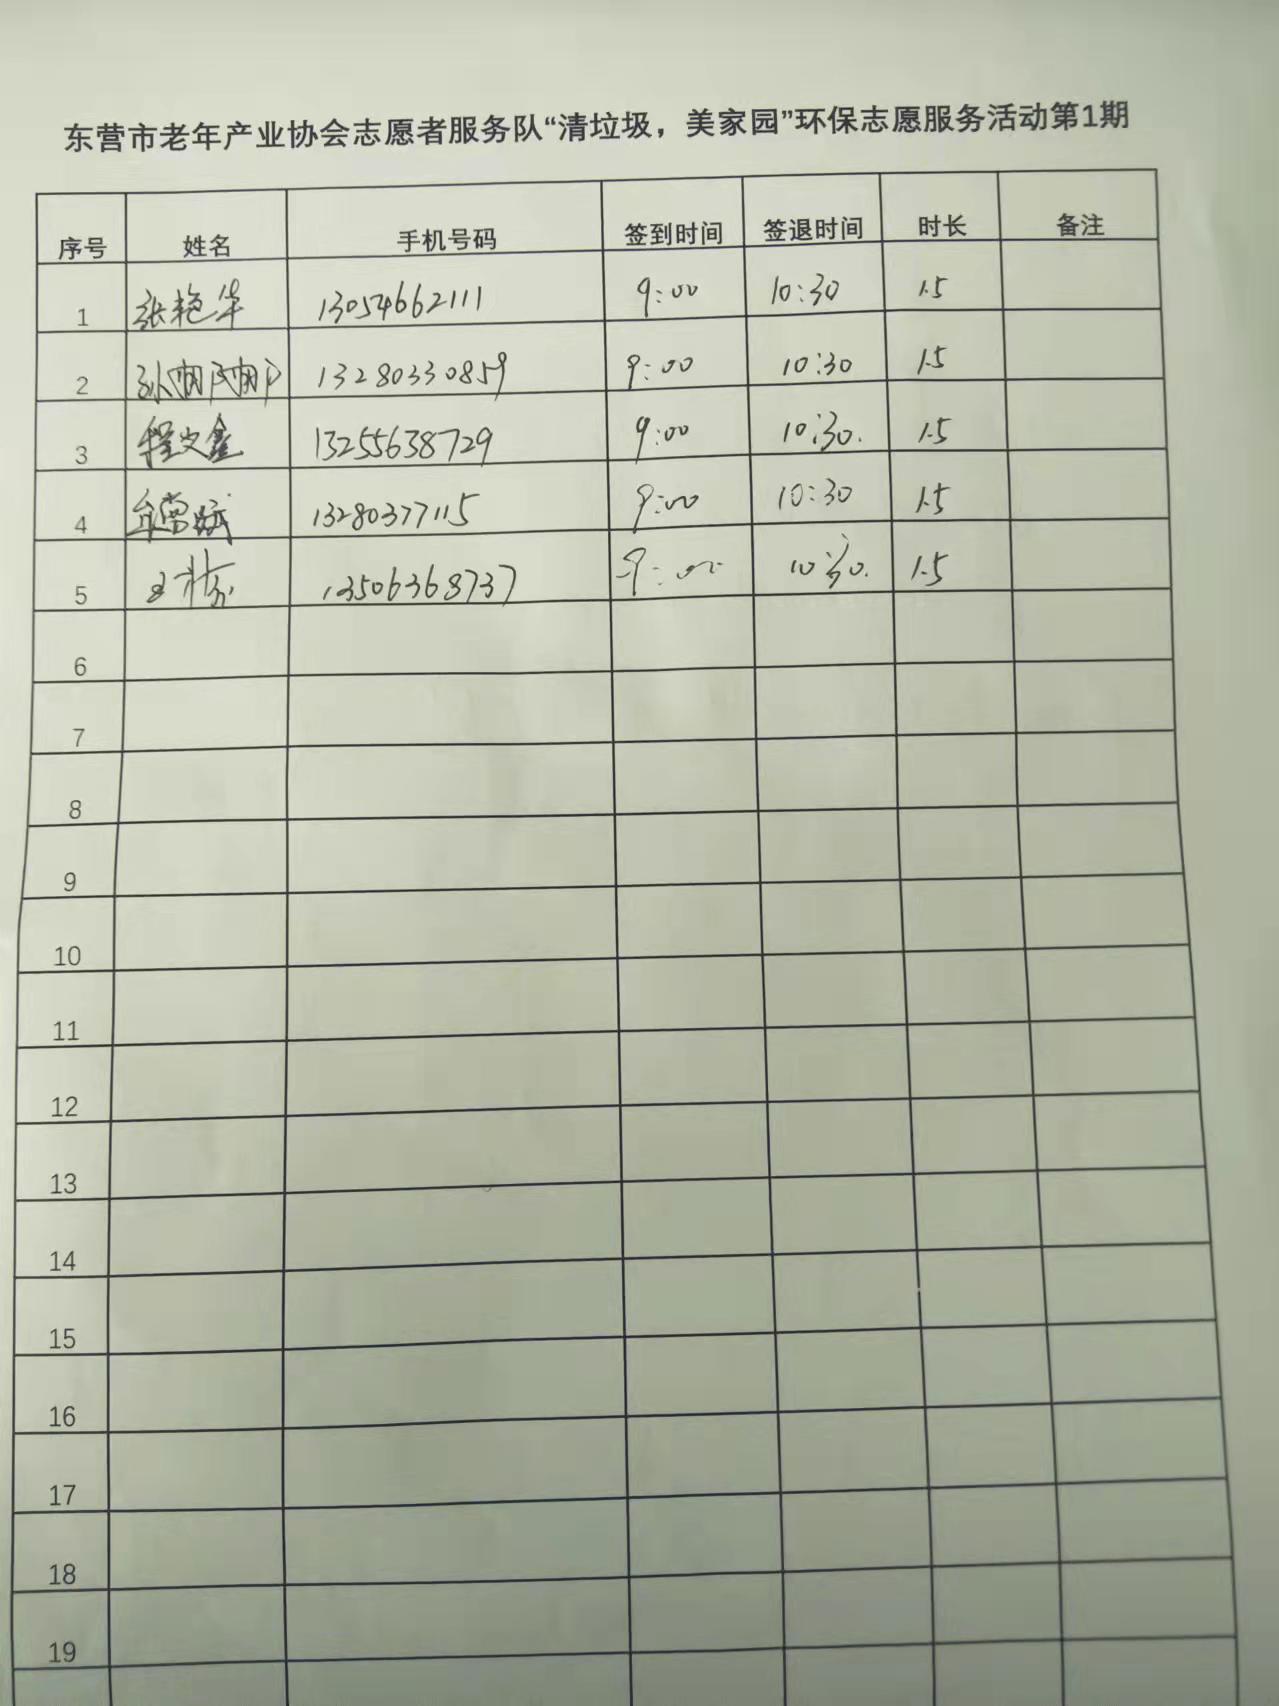 东营市老年产业协会志愿者服务队“清垃圾，美家园”环保志愿服务活动第1期
序号 姓名 手机号码 签到时间 签退时间 时长 备注
1 张艳华 13054662111 9:00 10:30 1.5
2 孙丽娜 13280330859 9:00 10:30 1.5
3 程文鑫 13255638729 9:00 10:30. 1.5
4 13280377115 9:00 10:30 1.5
5 王 13506368737 9:00 10:30. 1.5
6
7
8
9
10
11
12
13
14
15
16
17
18
19